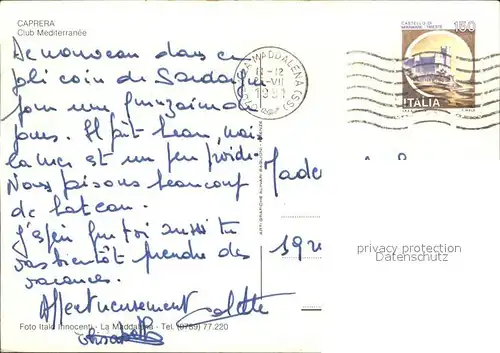 CAPRERA
Club Mediterranée
De nouveau dans ce
joli coin de Sardaigne
pour une quinzaine de
jours. Il fait beau, mais
la mer est un peu froide.
Nous faisons beaucoup
de bateau.
J'espère que toi aussi tu
vas bientôt prendre des
vacances.
Affectueusement Colette
Foto Italo Innocenti - La Maddalena - Tel. (0789) 77.220
ARTI GRAFICHE ALINARI BAGLIONI - FIRENZE
LA MADDALENA (SS)
11-12
VII
1981
CASTELLO DI
MIRAMARE - TRIESTE
150
ITALIA
Made
592
privacy protection
Datenschutz